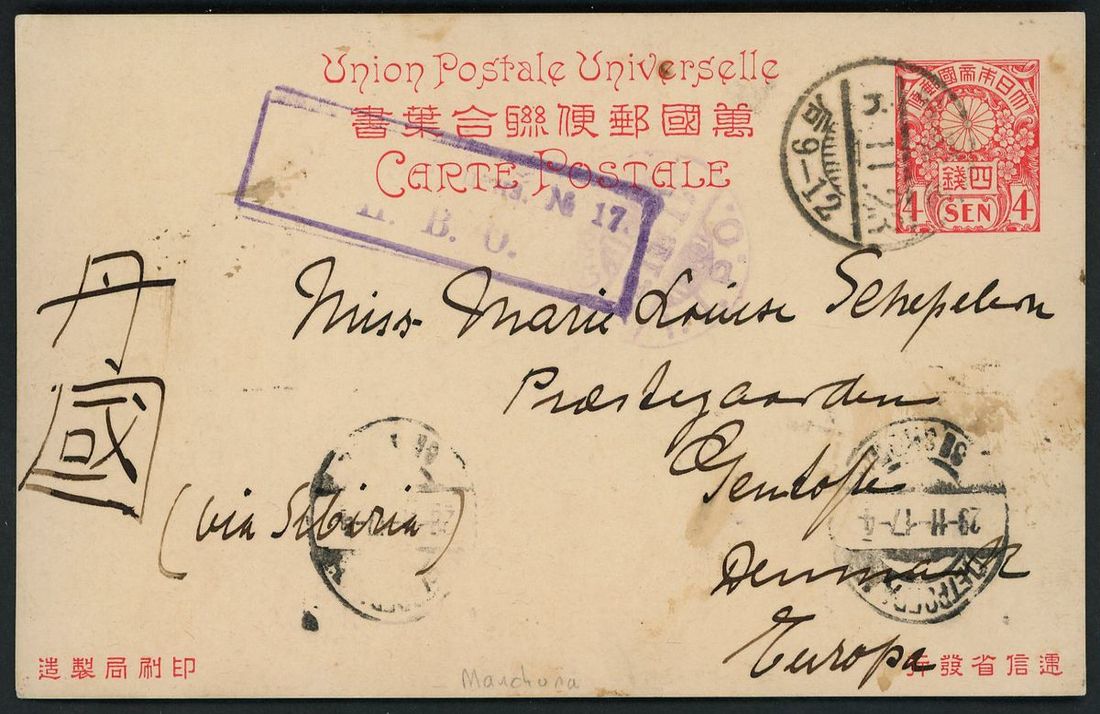 Union Postale Universelle
萬國郵便聯合葉書
CARTE POSTALE
大日本帝國郵便
四錢
4 SEN 4
9-12
№ 17.
B. O.
Miss Marie Louise Schepelern
Præstegaarden
Gentofte
Denmark
Europa
丹國
(via Sibiria)
29-11-17-4
印刷局製造
遞信省發行